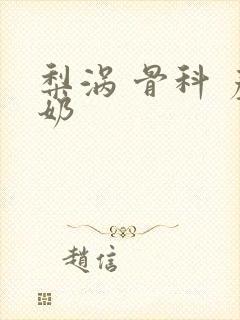 梨涡 骨科
奶
趙信